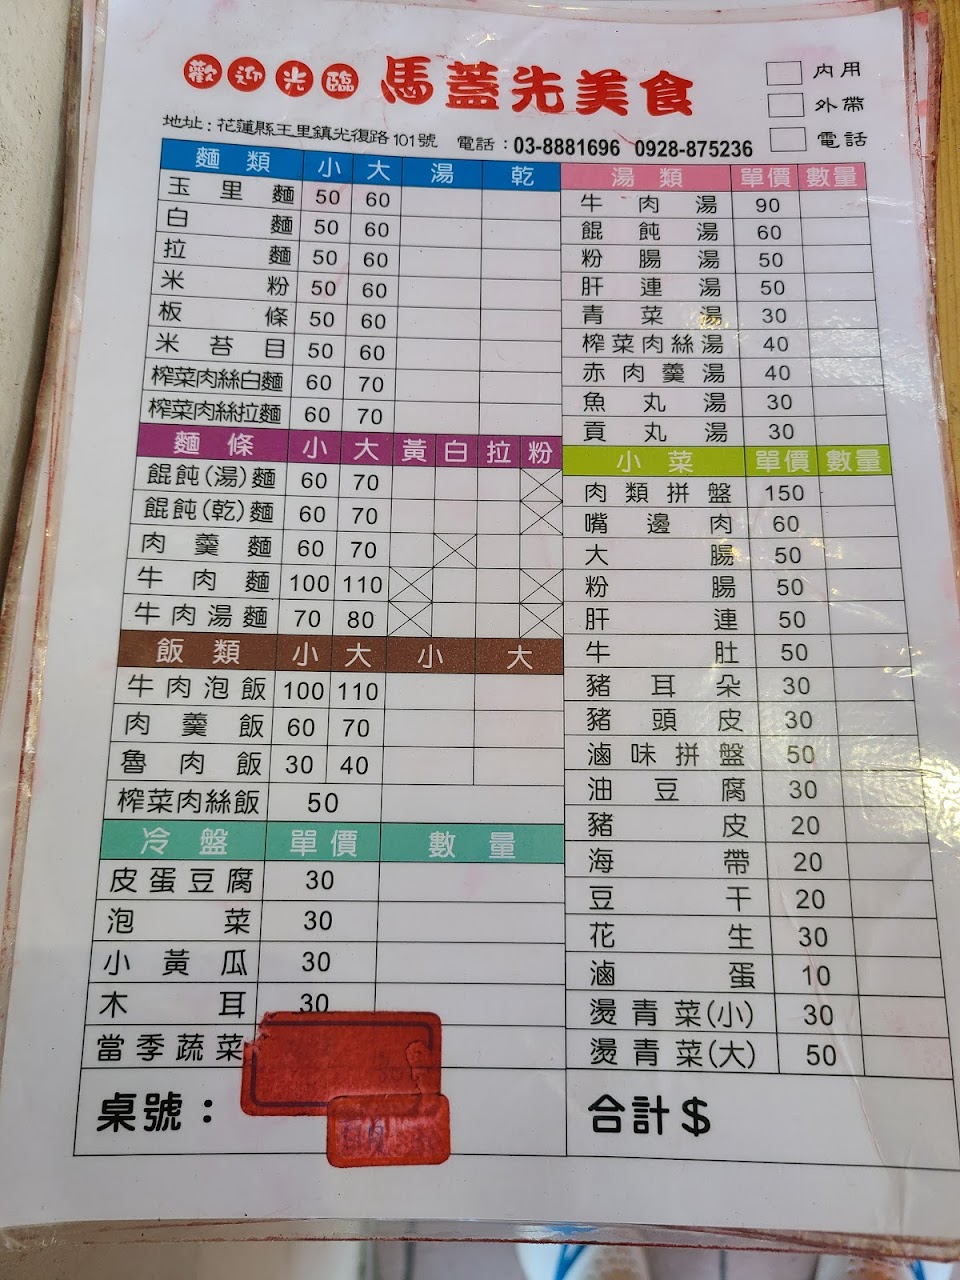 歡迎光臨 馬蓋先美食
內用
外帶
電話
地址：花蓮縣玉里鎮光復路101號 電話：03-8881696 0928-875236
麵類 小 大 湯 乾
玉里麵 50 60
白麵 50 60
拉麵 50 60
米粉 50 60
板條 50 60
米苔目 50 60
榨菜肉絲白麵 60 70
榨菜肉絲拉麵 60 70
麵條 小 大 黃 白 拉 粉
餛飩(湯)麵 60 70
餛飩(乾)麵 60 70
肉羹麵 60 70
牛肉麵 100 110
牛肉湯麵 70 80
飯類 小 大 小 大
牛肉泡飯 100 110
肉羹飯 60 70
魯肉飯 30 40
榨菜肉絲飯 50
冷盤 單價 數量
皮蛋豆腐 30
泡菜 30
小黃瓜 30
木耳 30
當季蔬菜
桌號：
湯類 單價 數量
牛肉湯 90
餛飩湯 60
粉腸湯 50
肝連湯 50
青菜湯 30
榨菜肉絲湯 40
赤肉羹湯 40
魚丸湯 30
貢丸湯 30
小菜 單價 數量
肉類拼盤 150
嘴邊肉 60
大腸 50
粉腸 50
肝連 50
牛肚 50
豬耳朵 30
豬頭皮 30
滷味拼盤 50
油豆腐 30
豬皮 20
海帶 20
豆干 20
花生 30
滷蛋 10
燙青菜(小) 30
燙青菜(大) 50
合計$